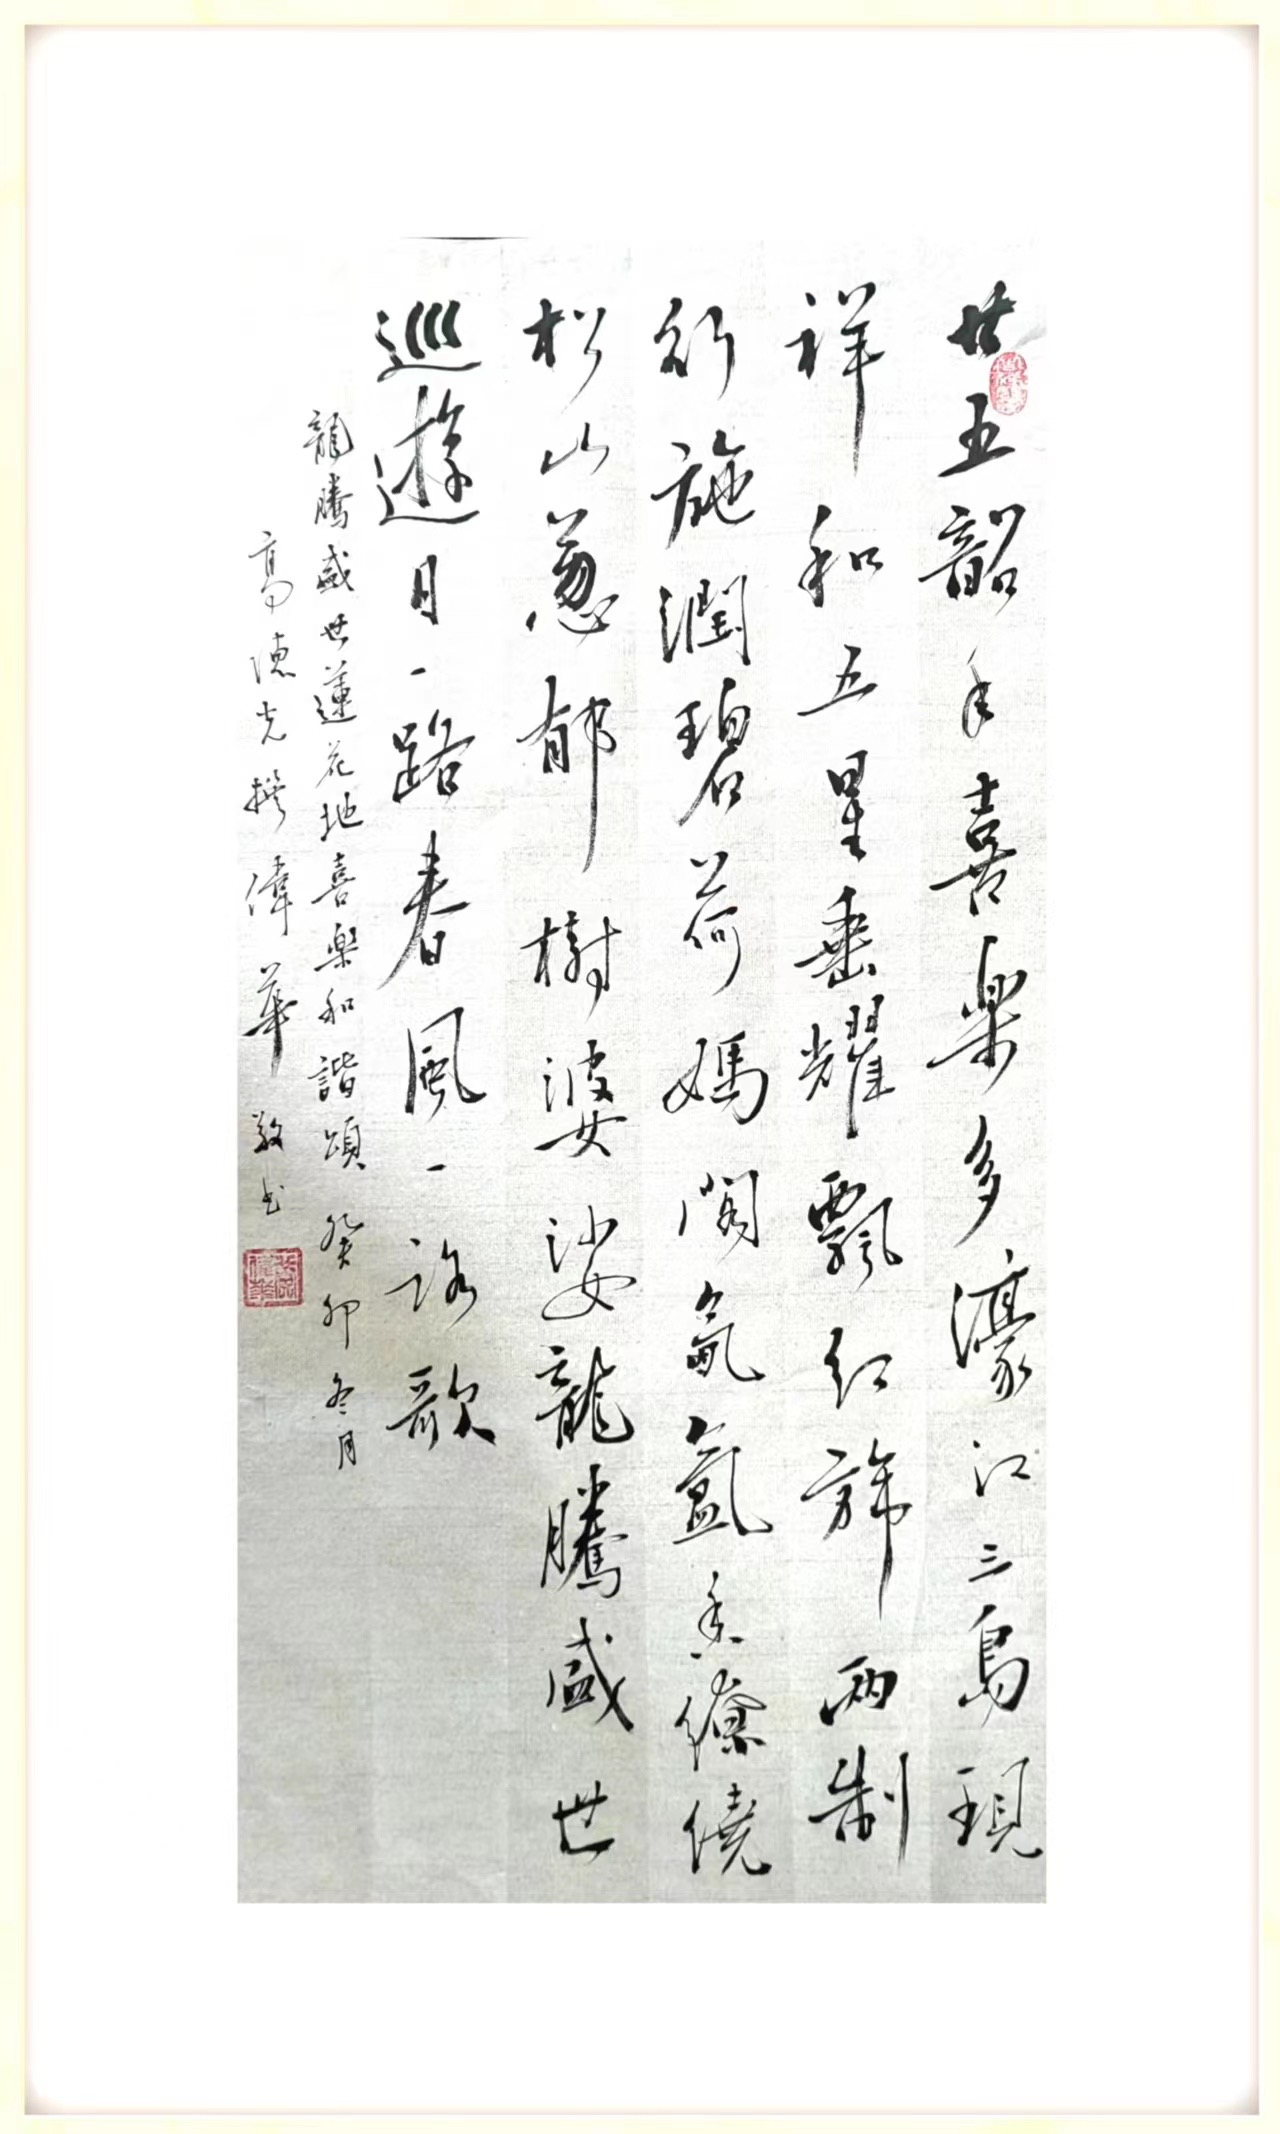 廿五韶年喜樂多濠江三島現
祥和五星垂耀飄红旆两制
衍施潤碧荷媽閣氤氲香繚繞
松山葱郁樹婆娑龍騰盛世
巡遊日一路春風一路歌
龍騰盛世蓮花地喜樂和諧頌癸卯冬月
高德光撰偉華敬书